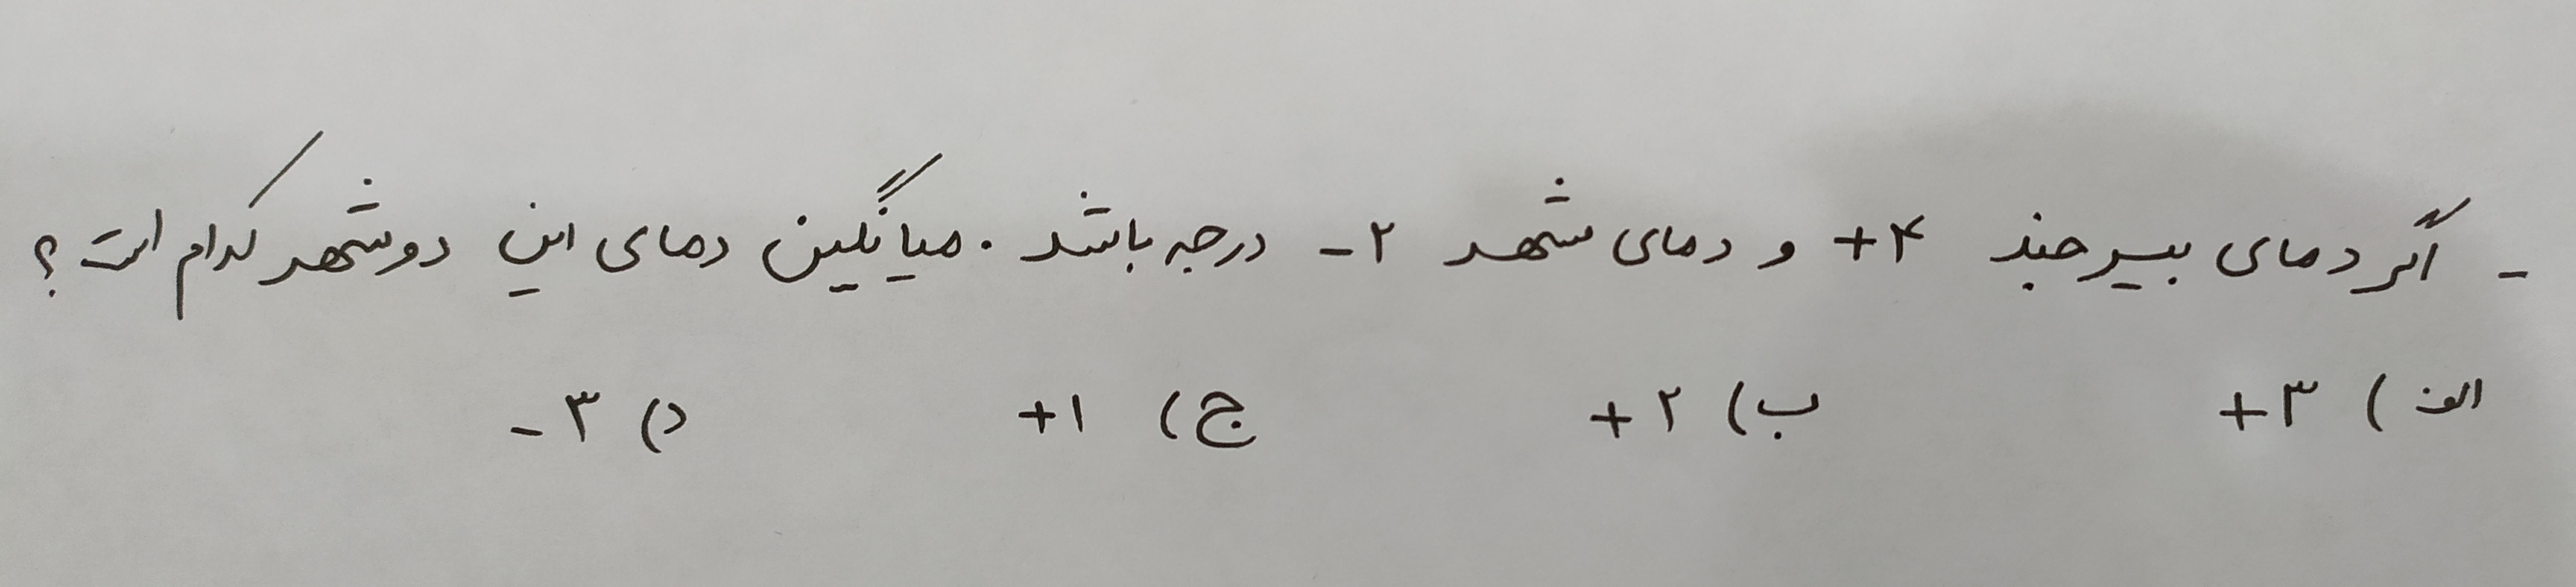 - اگر دمای بیرجند ۴+ و دمای شهر ۲- درجه باشد . میانگین دمای این دو شهر کدام است ؟
الف ) ۳+ ب) ۲+ ج) ۱+ د) ۳-